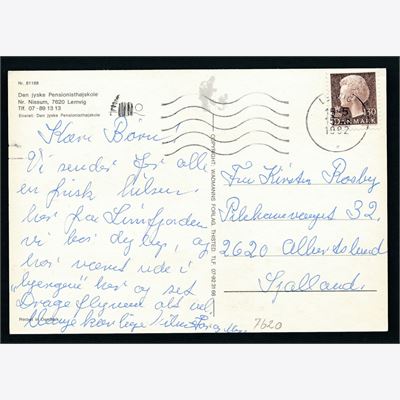 Nr. 81188
Den jyske Pensionisthøjskole
Nr. Nissum, 7620 Lemvig
Tlf. 07-89 13 13
Eneret: Den jyske Pensionisthøjskole
Kære Børn!
Vi sender Jer alle
en frisk hilsen
her fra Limfjorden
vi bor dejligt, og
har været ude i
her og set
Drage flyvning
Mange kærlige hilsner
COPYRIGHT: WARMANNS FORLAG, THISTED. TLF. 07-92 31 66
130
DANMARK
1982
Fru Kirsten Rosby
32
2620 Albertslund
Sjælland.
7620